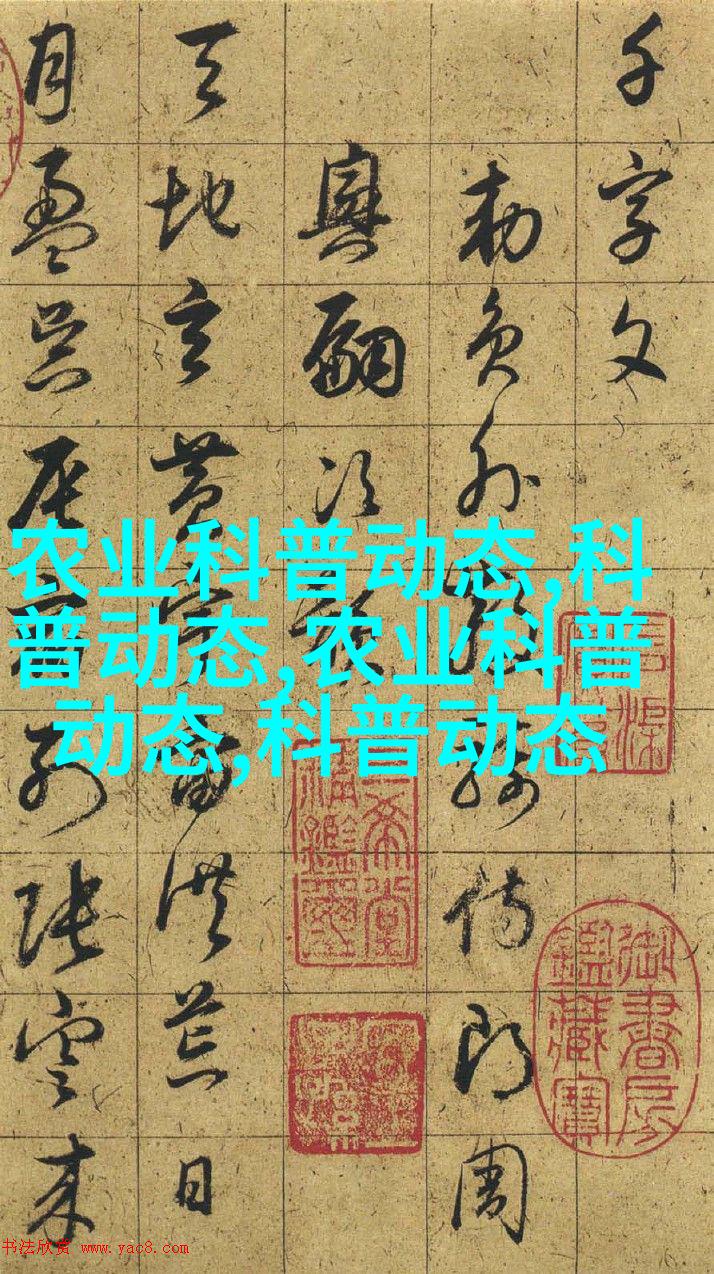 千字文
勅員外散騎侍郎周
興嗣次韻
天地玄黃宇宙洪荒日
月盈昃辰宿列張寒來
农业科普动态,科
普动态,农业科普
动态,科普动态
三希堂
精鑑璽
御書房
鑑藏寶
书法欣赏 www.yac8.com